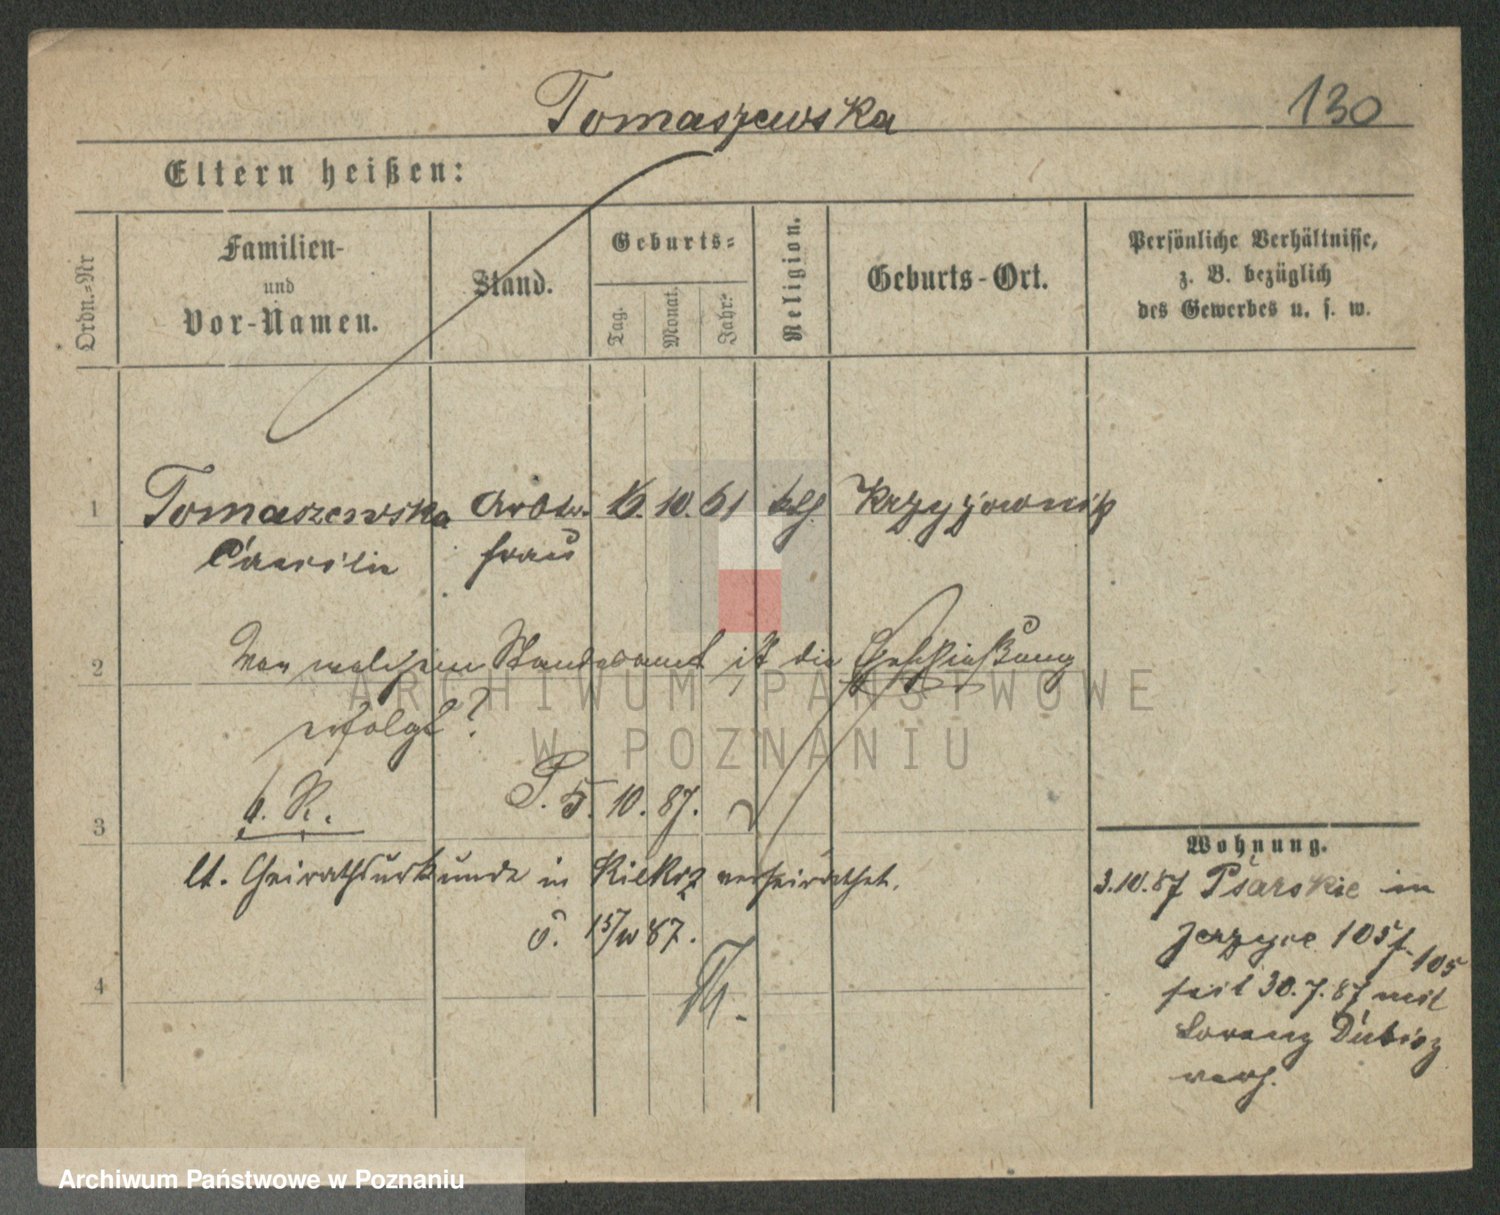 Tomaszewska 130
Eltern heißen:
Ordn.-Nr
Familien-
und
Vor-Namen.
Stand.
Geburts-
Tag.
Monat.
Jahr.
Religion.
Geburts-Ort.
Persönliche Verhältnisse,
z. B. bezüglich
des Gewerbes u. s. w.
1 Tomaszewska Arbtr. 10. 61 kth
frau
2 Von welchem Standesamt ist die Eheschließung
erfolgt?
P. 5. 10. 87.
3
lt. Heirathsurkunde in Kiekrz verheirathet.
4
Wohnung.
3.10.87 Psarskie in
Jerzyce 105
105
seit 30.7.87 mit
Lorenz
verh.
ARCHIWUM PAŃSTWOWE
W POZNANIU
Archiwum Państwowe w Poznaniu